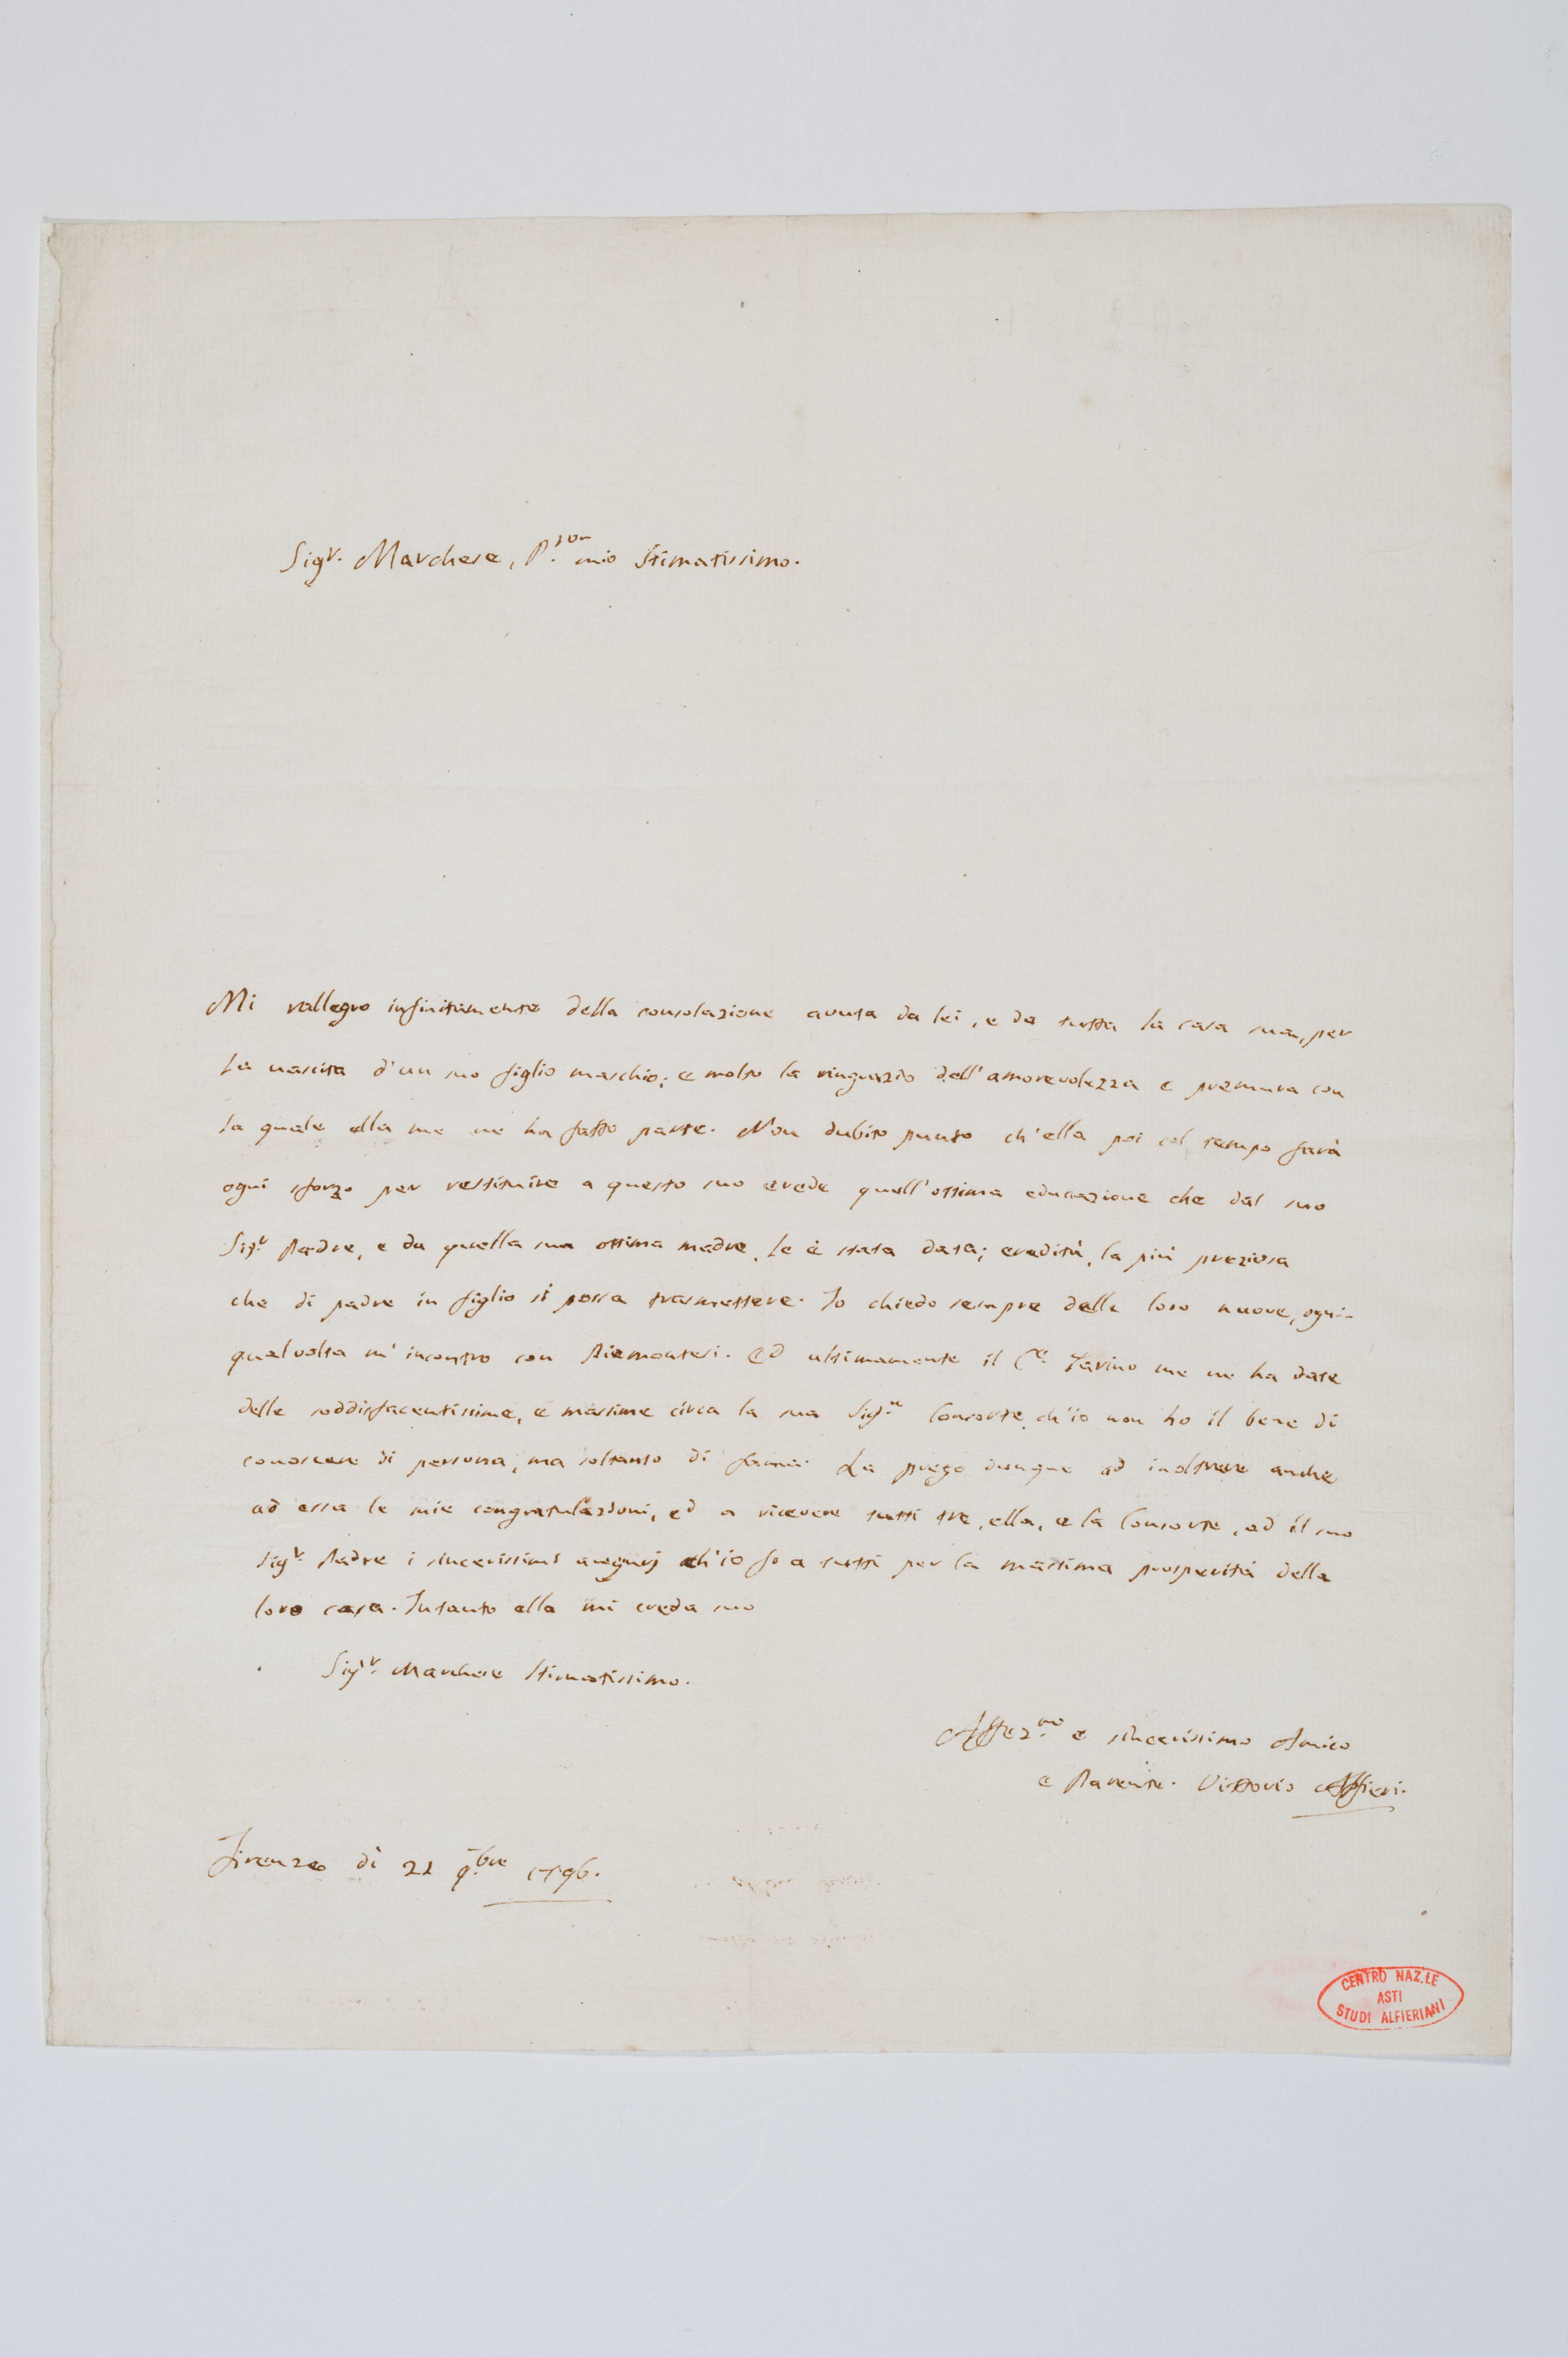 Sig.r Marchese, P.ron mio Stimatissimo.
Mi rallegro infinitamente della consolazione avuta da lei, e da tutta la casa sua, per
la nascita d'un suo figlio maschio; e molto la ringrazio dell'amorevolezza e premura con
la quale ella me ne ha fatto parte. Non dubito punto ch'ella poi col tempo farà
ogni sforzo per restituire a questo suo erede quell'ottima educazione che dal suo
Sig.r Padre, e da quella sua ottima madre, le è stata data; eredità, la più preziosa
che di padre in figlio si possa trasmettere. Io chiedo sempre delle loro nuove, ogni-
qualvolta m'incontro con Piemontesi. Ed ultimamente il C.te Tarino me ne ha date
delle soddisfacentissime, e massime circa la sua Sig.ra Consorte, ch'io non ho il bene di
conoscere di persona, ma soltanto di fama. La prego dunque ad inoltrare anche
ad essa le mie congratulazioni, ed a ricevere tutti tre, ella, e la Consorte, ed il suo
Sig.r Padre i sincerissimi augurj ch'io fo a tutti per la massima prosperità della
loro casa. Intanto ella mi creda suo
Sig.r Marchese Stimatissimo.
Affez.mo e sincerissimo Amico
e Parente. Vittorio Alfieri.
Firenze dì 21 9.bre 1796.
CENTRO NAZ.LE
ASTI
STUDI ALFIERIANI